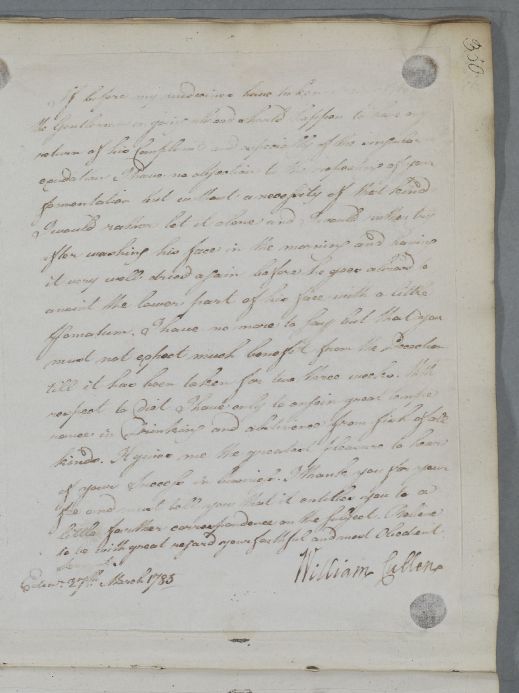 350
If before my medicine have taken
the Gentleman in going abroad should happen to have any
return of his Complaint and especially of the
exudation I have no objection to the repeating of your
fomentation but without a necessity of that kind
I would rather let it alone and I would rather try
after washing his face in the morning and having
it very well dried again before he goes abroad to
anoint the lower part of his face with a little
Pomatum. I have no more to say but that you
must not expect much benefit from the Decoction
till it has been taken for two three weeks. With
respect to Diet I have only to enjoin great
in Drinking and abstinence from fish of all
kinds. It gives me the greatest pleasure to hear
of your Success in business. I thank you for your
fee and must tell you that it entitles you to a
little further correspondence on the subject. Believe
to be with great regard your faithful and most Obedient
Edinr. 27th March 1783
William Cullen